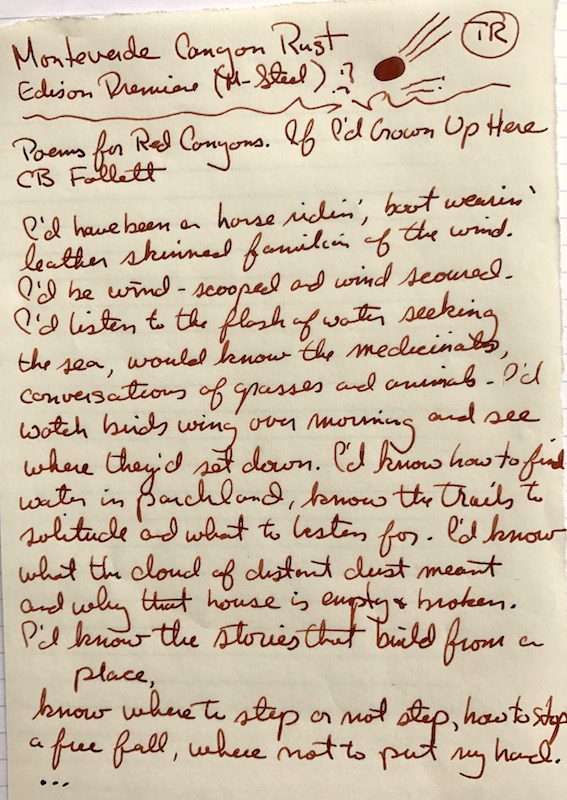 Monteverde Canyon Rust
TR
Edison Premiere (M-Steel)
Poems for Red Canyons. If I'd Grown Up Here
CB Follett
I'd have been a horse ridin', boot wearin'
leather skinned familiar of the wind.
I'd be wind-scooped and wind scoured.
I'd listen to the flash of water seeking
the sea, would know the medicinals,
conversations of grasses and animals. I'd
watch birds wing over morning and see
where they'd set down. I'd know how to find
water in parchland, know the trails to
solitude and what to listen for. I'd know
what the cloud of distant dust meant
and why that house is empty & broken.
I'd know the stories that build from a
place,
know where to step or not step, how to stop
a free fall, where not to put my hand.
...